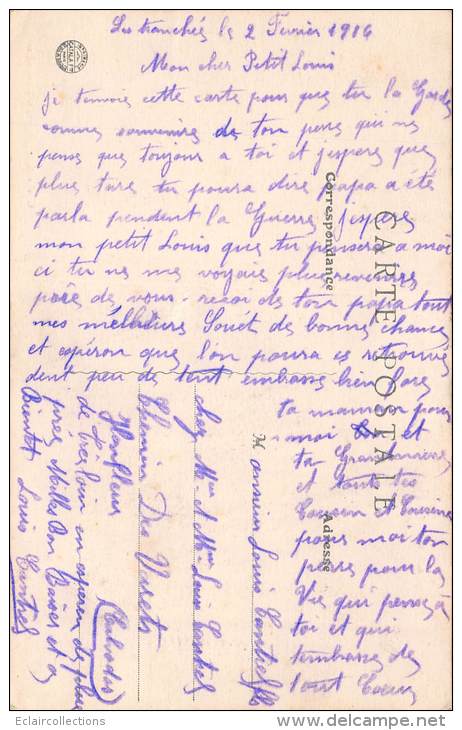 Les tranchés le 2 Fevrier 1916
Mon cher Petit Louis
je tenvois cette carte pour que tu la Gardes
comme souvenire de ton pere qui ne
pense que toujour a toi et jespere que
plus tare tu poura dire papa a été
par la pendent la Guerre jespere
mon petit Louis que tu pensera a moi
ci tu ne me voyais plus revenire
pére de vous recoi de ton papa tout
mes meilleurs Souét de bonne chance
et espéron que l'on poura ce retrouvé
dent peu de tent embrasse bien
ta maman pour
moi et
ta Grand mère
et toute tes
Cousin et Cousine
pour moi ton
pere pour la
Vie qui pense a
toi et qui
tembrasse de
tout Coeur
CARTE POSTALE
Correspondance
Adresse
Monsieur Louis Cantrel fils
chez Mr et Mme Louis Cantrel
Chemin Des Varets
Honfleur
(Calvados)
de tres loin en esperan de plus
pres Milles Bon Baiser et a
Bientot Louis Cantrel
Eclaircollections